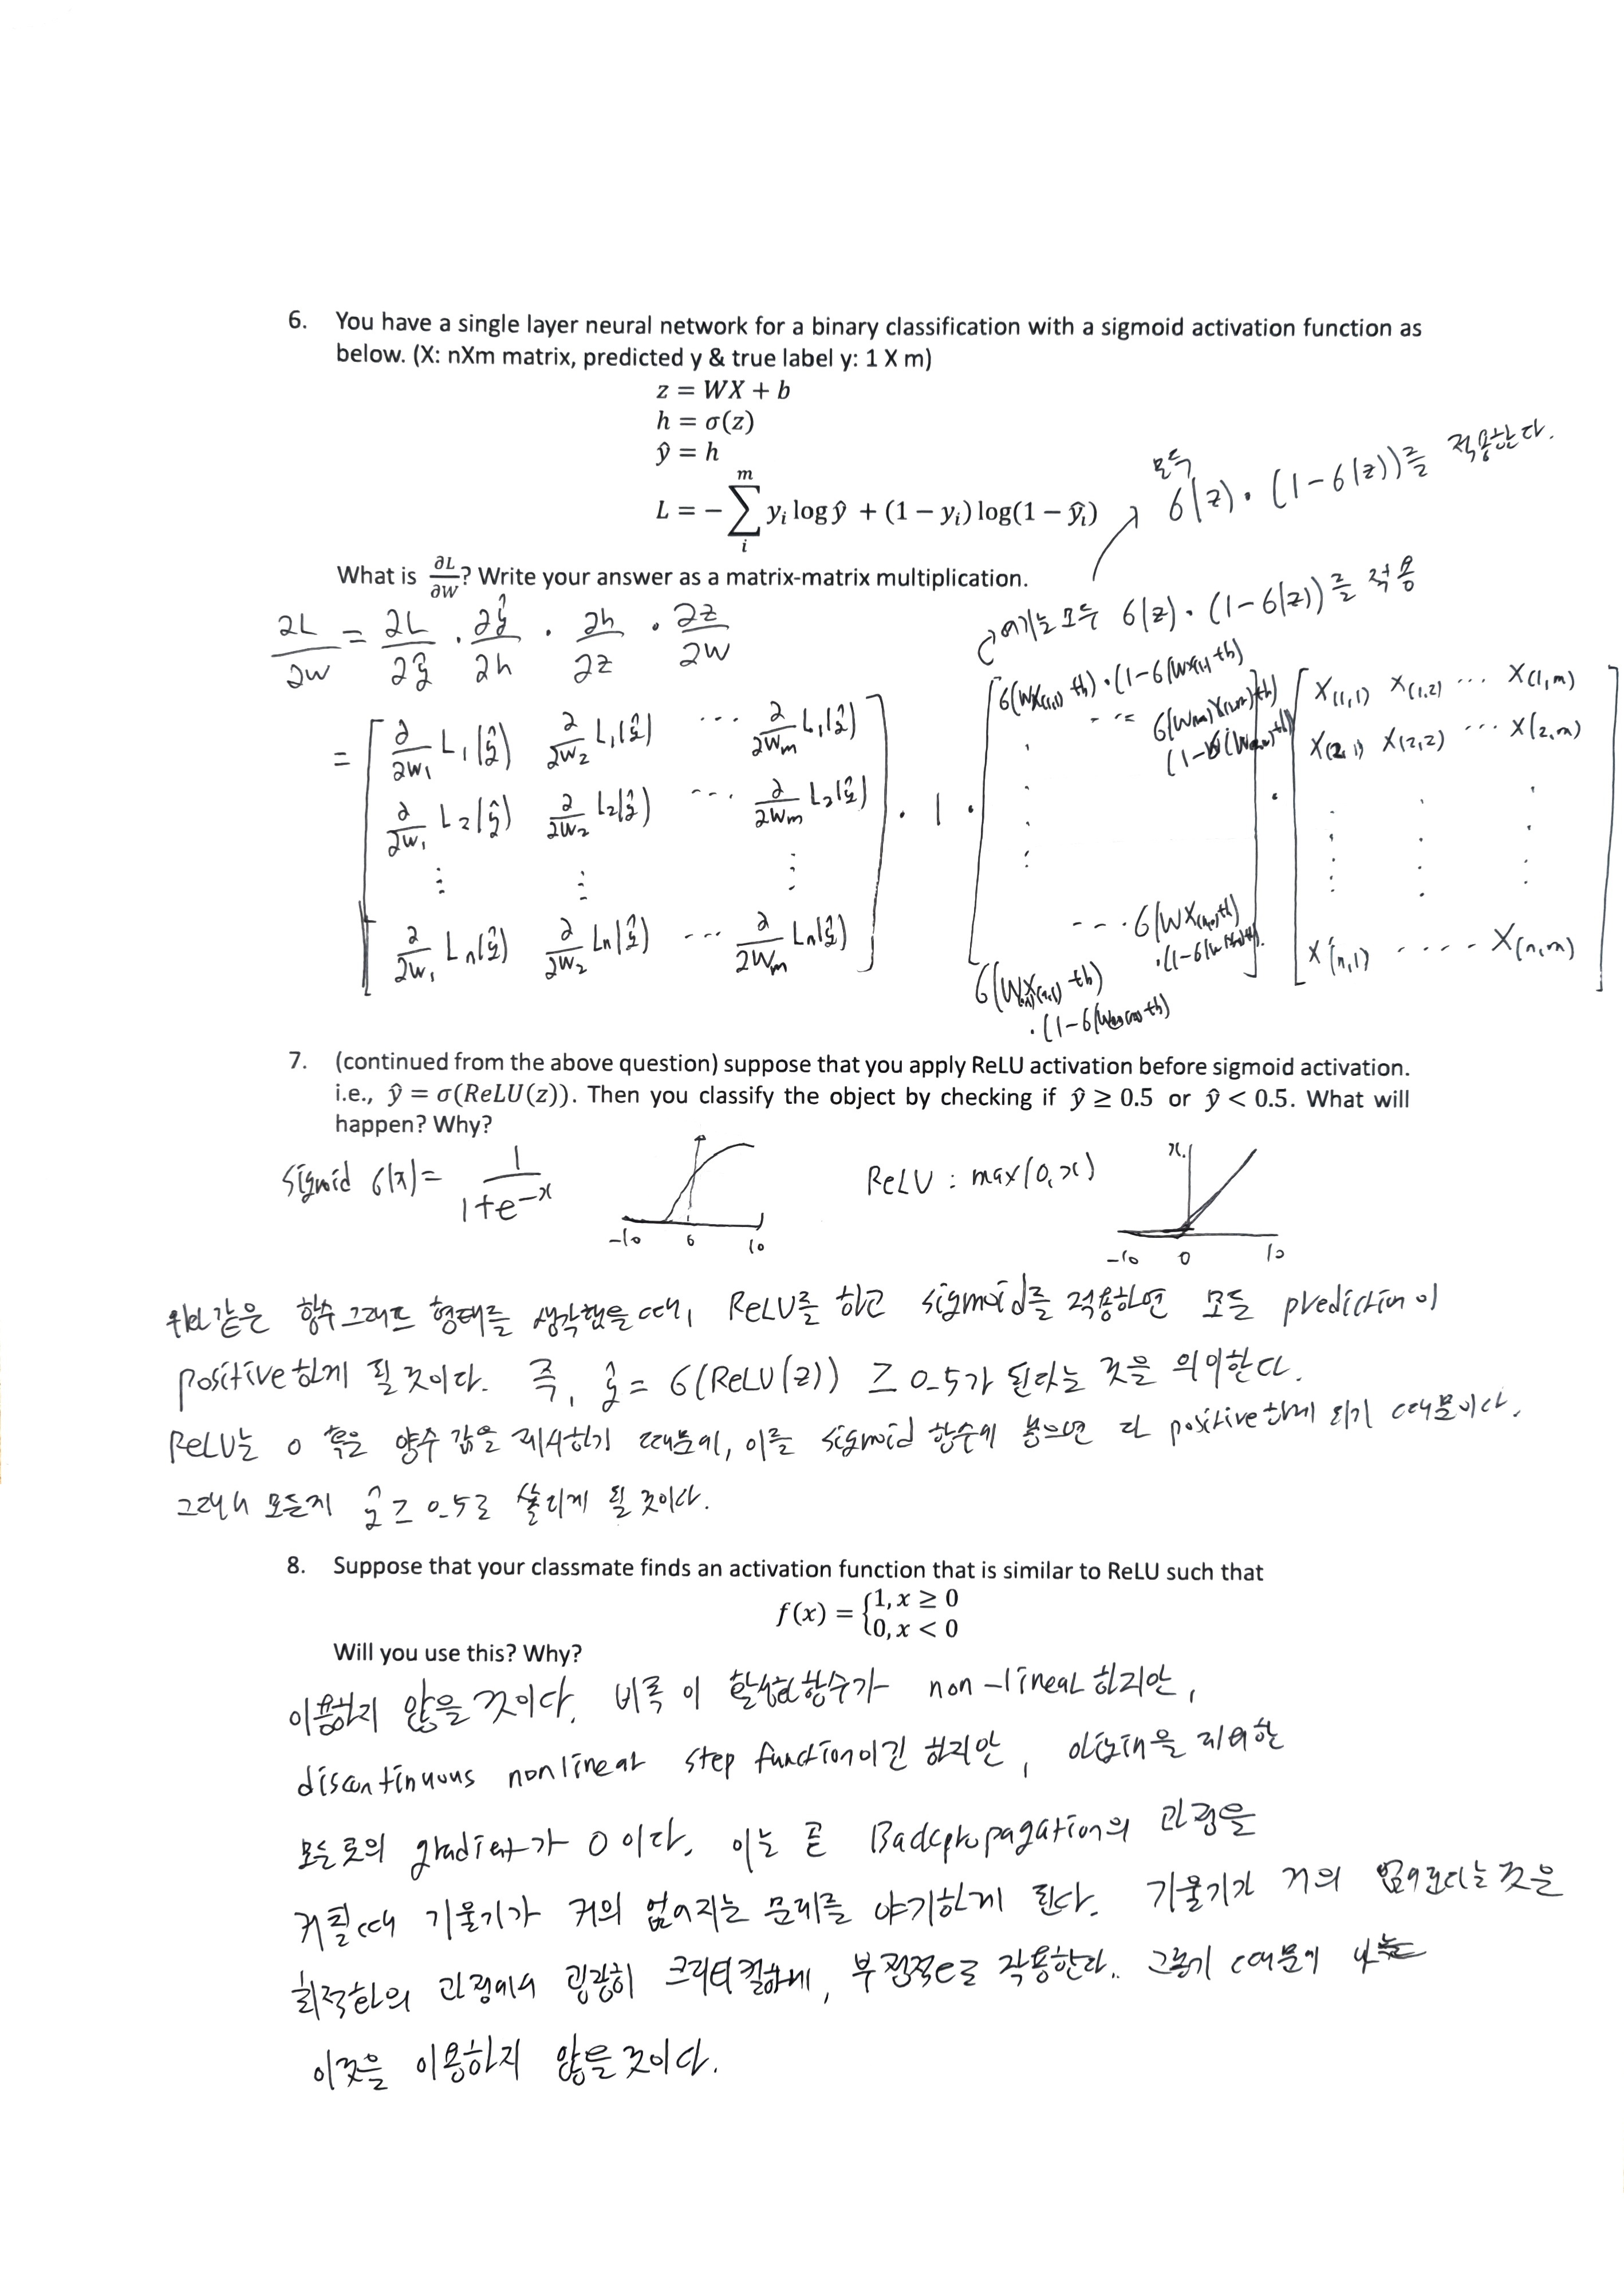 6. You have a single layer neural network for a binary classification with a sigmoid activation function as
below. (X: nXm matrix, predicted y & true label y: 1 X m)
z = WX + b
h = σ(z)
ŷ = h
L = − ∑ᵢᵐ yᵢ log ŷ + (1 − yᵢ) log(1 − ŷᵢ)
모두 σ(z)·(1−σ(z))를 적용한다.
What is ∂L/∂W? Write your answer as a matrix-matrix multiplication.
∂L/∂W = ∂L/∂ŷ · ∂ŷ/∂h · ∂h/∂z · ∂z/∂W
여기는 모두 σ(z)·(1−σ(z))를 적용
= [ ∂/∂W₁ L₁(ŷ) ∂/∂W₂ L₁(ŷ) ⋯ ∂/∂Wm L₁(ŷ)
∂/∂W₁ L₂(ŷ) ∂/∂W₂ L₂(ŷ) ⋯ ∂/∂Wm L₂(ŷ)
⋮ ⋮ ⋮
∂/∂W₁ Ln(ŷ) ∂/∂W₂ Ln(ŷ) ⋯ ∂/∂Wm Ln(ŷ) ] · 1 ·
[ σ(WX(1,1)+b)·(1−σ(WX(1,1)+b)
[ X(1,1) X(1,2) ⋯ X(1,m)
X(2,1) X(2,2) ⋯ X(2,m)
X(n,1) ⋯ X(n,m) ]
7. (continued from the above question) suppose that you apply ReLU activation before sigmoid activation.
i.e., ŷ = σ(ReLU(z)). Then you classify the object by checking if ŷ ≥ 0.5 or ŷ < 0.5. What will
happen? Why?
Sigmoid σ(x) = 1/(1+e^−x)
-10 0 10
ReLU : max(0,x)
x
-10 0 10
위와 같은 함수 그래프 형태를 생각했을 때, ReLU를 하고 sigmoid를 적용하면 모든 prediction이
positive하게 될 것이다. 즉, ŷ = σ(ReLU(z)) ≥ 0.5가 된다는 것을 의미한다.
ReLU는 0 혹은 양수 값을 제시하기 때문에, 이를 sigmoid 함수에 넣으면 다 positive하게 되기 때문이다.
그래서 모든게 ŷ ≥ 0.5로 쏠리게 될 것이다.
8. Suppose that your classmate finds an activation function that is similar to ReLU such that
f(x) = {1, x ≥ 0
0, x < 0
Will you use this? Why?
이용하지 않을 것이다. 비록 이 활성화함수가 non-linear 하지만,
discontinuous nonlinear step function이긴 하지만, 을 제외한
모든 곳의 gradient가 0이다. 이는 곧 Backpropagation의 과정을
거칠 때 기울기가 거의 없어지는 문제를 야기하게 된다. 기울기가 거의 없어진다는 것은
최적화의 과정에서 굉장히 크리티컬하게, 부정적으로 작용한다. 그렇기 때문에 나는
이것을 이용하지 않을 것이다.